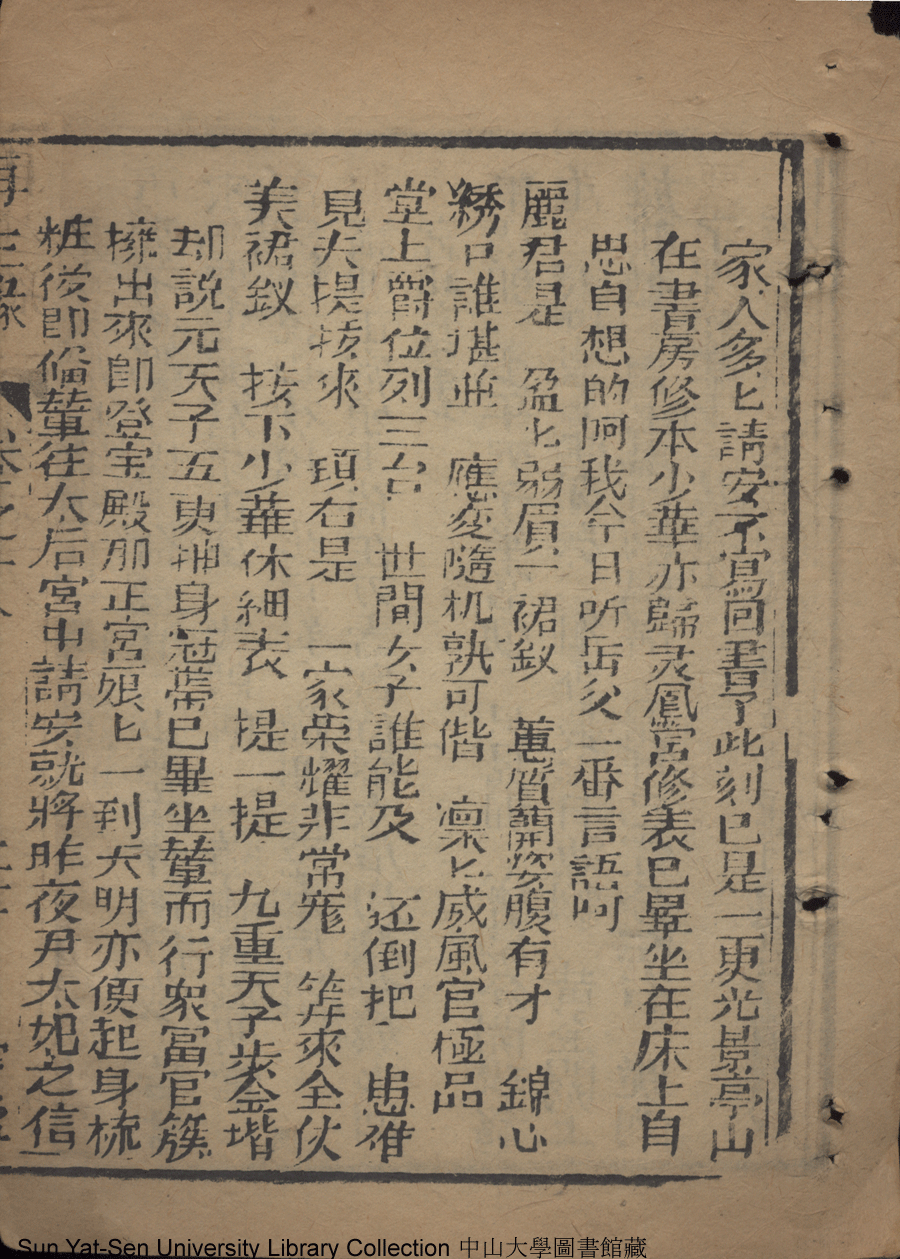 家人多匕請安不寫回書了此刻巳是一更光景亭山
在書房修本小華亦歸灵鳳宮修表巳畢坐在床上自
思自想的呵我今日听岳父一番言語呵
麗君是　盈匕弱眉一裙釵　蕙質蘭姿腹有才　錦心
綉口誰堪並　應変隨机孰可偕　凛匕威風官極品
堂上爵位列三台　世間女子誰能及　还倒把　患难
見夫提抜來　瑣右是　一家荣耀非常寵　筭來全仗
美裙釵　按下少華休細表　提一提　九重天子步金堦
却説元天子五更抽身冠帶巳畢坐輦而行衆宮官簇
擁出來即登宝殿那正宮娘匕一到天明亦便起身梳
粧後即偹輦往太后宮中請安就將昨夜尹太妃之信
再
Sun Yat-Sen University Library Collection 中山大學圖書館藏